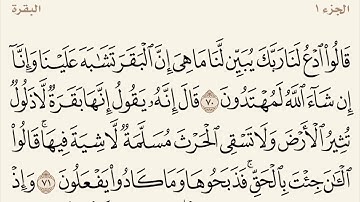 الجزء ١
البقرة
قَالُوا۟ ٱدْعُ لَنَا رَبَّكَ يُبَيِّن لَّنَا مَا هِىَ إِنَّ ٱلْبَقَرَ تَشَٰبَهَ عَلَيْنَا وَإِنَّآ
إِن شَآءَ ٱللَّهُ لَمُهْتَدُونَ ٧٠ قَالَ إِنَّهُۥ يَقُولُ إِنَّهَا بَقَرَةٌ لَّا ذَلُولٌ
تُثِيرُ ٱلْأَرْضَ وَلَا تَسْقِى ٱلْحَرْثَ مُسَلَّمَةٌ لَّا شِيَةَ فِيهَا ۚ قَالُوا۟
ٱلْـَٰٔنَ جِئْتَ بِٱلْحَقِّ ۚ فَذَبَحُوهَا وَمَا كَادُوا۟ يَفْعَلُونَ ٧١ وَإِذْ